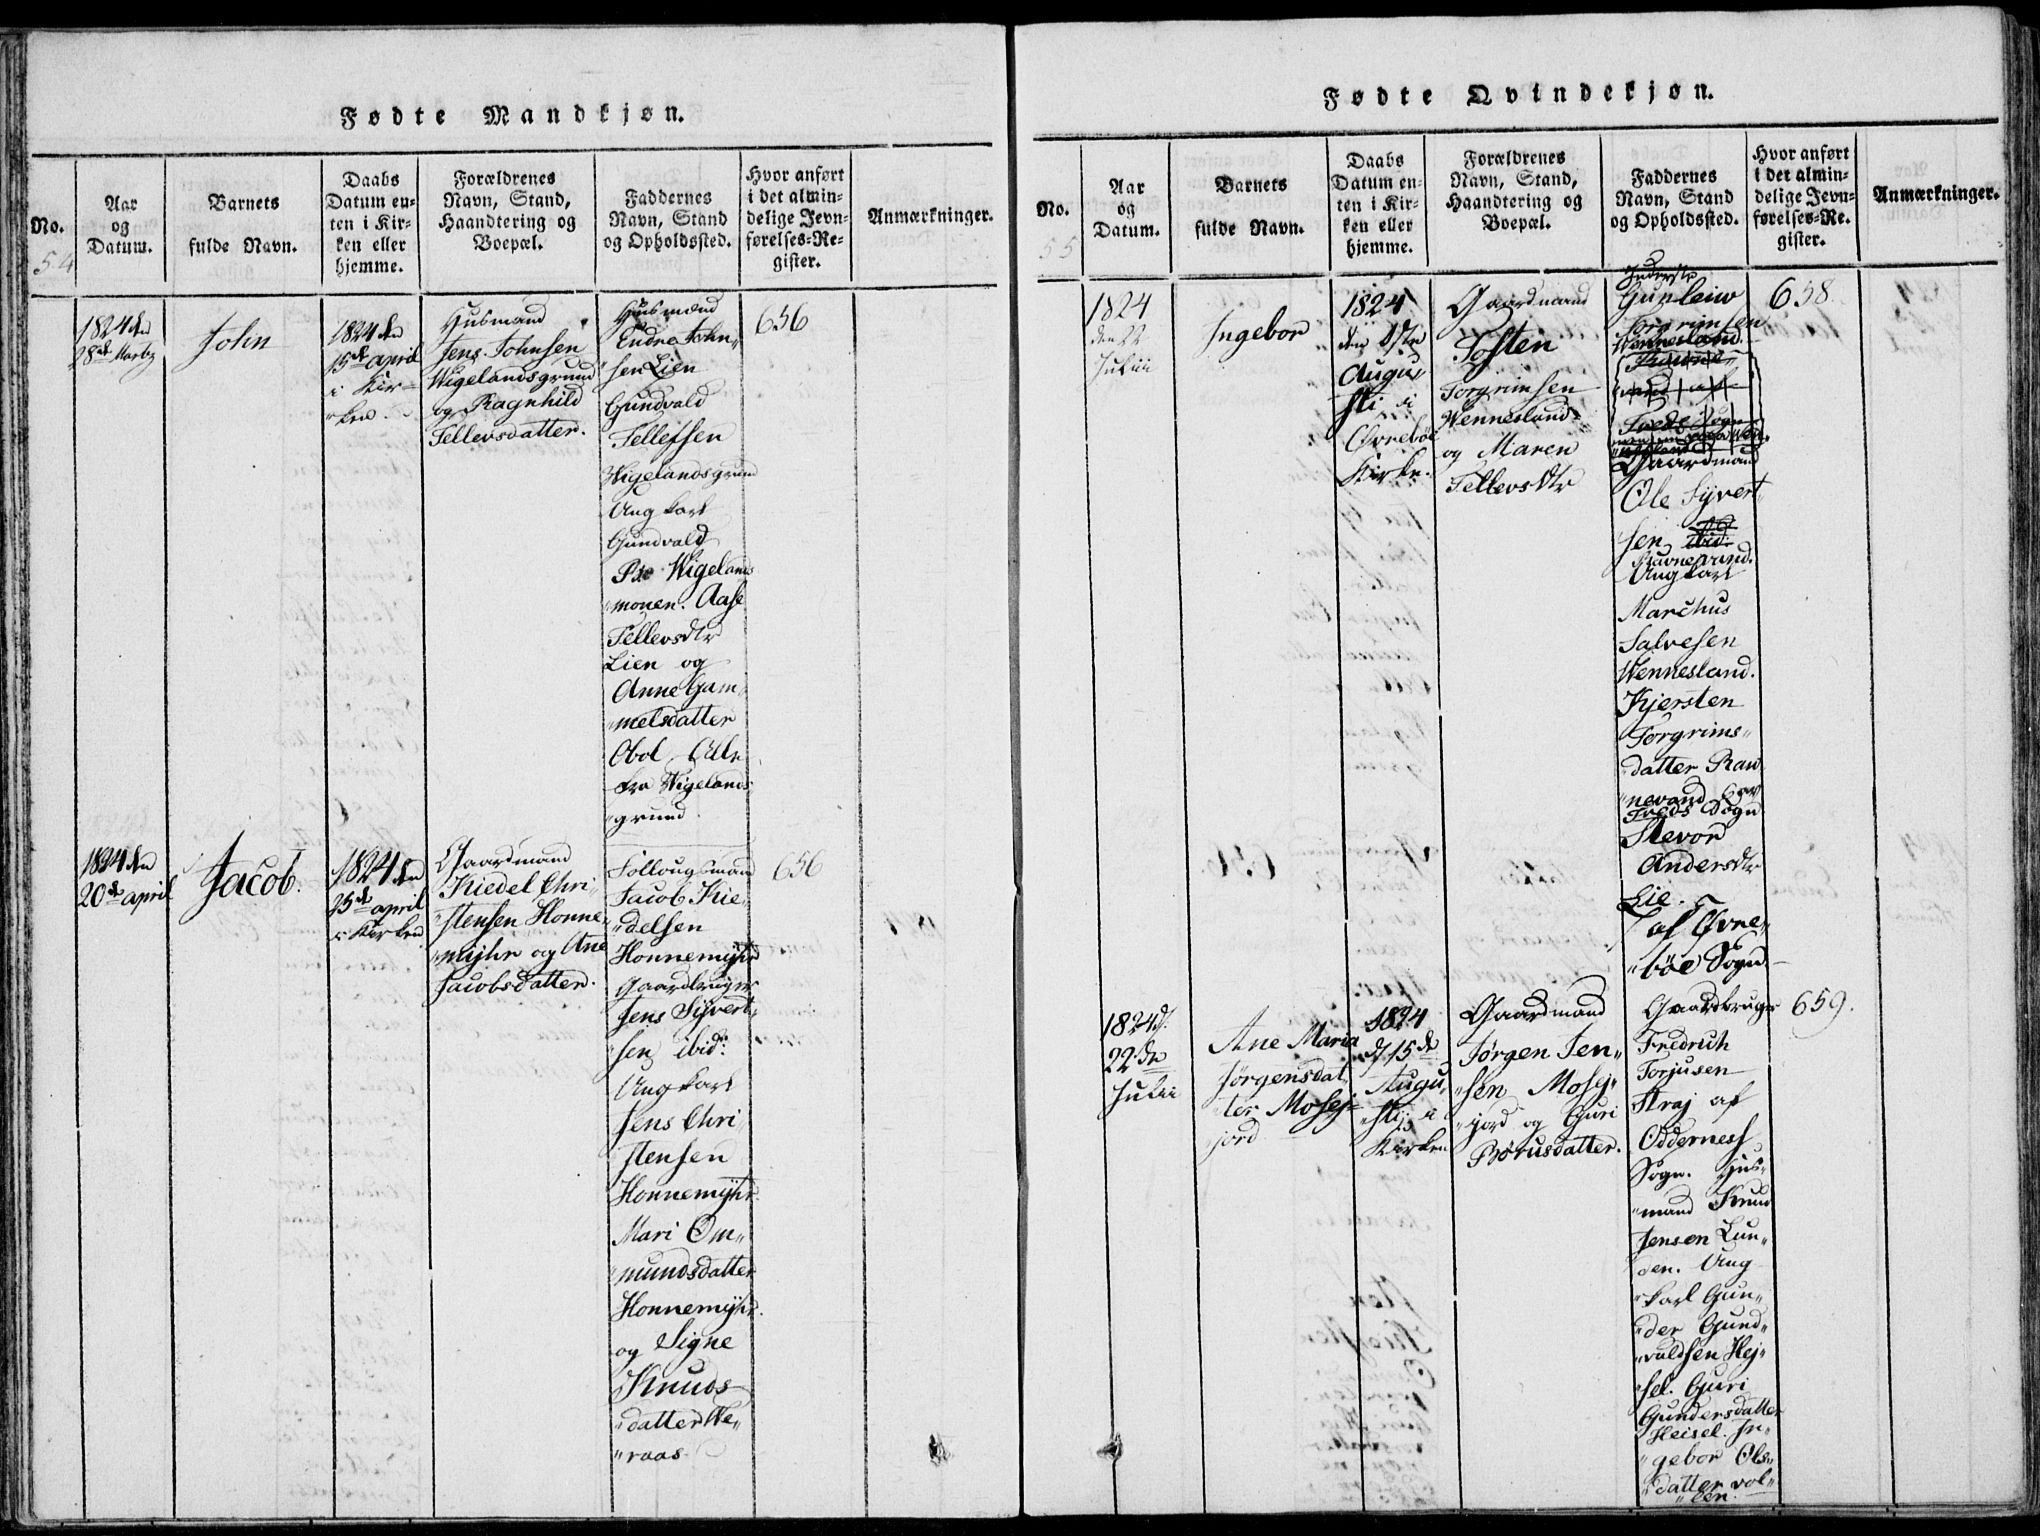 Fødte Mandkjøn.
No.
54
Aar
og
Datum.
Barnets
fulde Navn.
Daabs
Datum en-
ten i Kir-
ken eller
hjemme.
Forældrenes
Navn, Stand,
Haandtering og
Boepæl.
Faddernes
Navn, Stand
og Opholdssted.
Hvor anført
i det almin-
delige Jevn-
førelses-Re-
gister.
Anmærkninger.
1824 den
28de Marty
John
1824 den
15de april
i Kir-
ken.
Husmand
Jens Johnsen
Wigelandsgrund
og Ragnhild
Tellevsdatter.
Husmænd
Endre John„
„sen Lien
Gundvald
Tellefsen
Wigelandsgrund
Ungkarl
Gundvald
Wigelands
„monen. Aase
Tellevsdtr
Lien og
Anne Gam„
„melsdatter
Obol Alle
fra Wigelands
„grund
656
1824 den
20de april
Jacob.
1824 den
25de april
i Kirken
Gaardmand
Kiedel Chri„
„stensen Honne„
„myhr og Ane
Jacobsdatter.
Jacob Kie„
„delsen
Honnemyhr
Gaardbruger
Jens Syvert„
„sen ibid:
Ungkarl
Jens Chri
stensen
Honnemyhr.
Mari Om„
„mundsdatter
Honnemyhr.
og Signe
Knuds-
„datter We„
„raas.
656
Fødte Qvindekjøn.
No.
55
Aar
og
Datum.
Barnets
fulde Navn.
Daabs
Datum en-
ten i Kir-
ken eller
hjemme.
Forældrenes
Navn, Stand,
Haandtering og
Boepæl.
Faddernes
Navn, Stand
og Opholdssted.
Hvor anført
i det almin-
delige Jevn-
førelses-Re-
gister.
Anmærkninger.
1824
den 22
Julii
Ingebor
1824
den 1ste
Augu„
sti i
Øvrebøe
Kirke.
Gaardmand
Tosten
Torgrimsen
Wennesland-
og Maren
Tellevsdtr
Gunleiw
Torgrimsen
Wennesland.
Gaardmand
Ole Syvert„
sen ibid:
Ravnevand.
Ungkarl
Marchus
Salvesen
Wennesland.
Kjersten
Torgrims„
„datter Raw
„nevand
Tveds Sogn
Stevor
Andersdtr
Lie.
af Øvre„
„bøe Sogn.
658.
1824 d.
22de
Julii
Ane Maria
Jørgensdat„
„ter Mosej=
jord
1824
d. 15de
Augu„
„stij i
Kirken
Gaardmand
Jørgen Jen„
„sen Mosej„
„jord og Guri
Børusdatter.
Gaardbruger
Fredrich
Torjusen
Straj af
Odderness
Sogn. Hus„
„mand Knud
Jensen Lun„
„den. Ung
„karl Gun„
„der Gund„
„valdsen Hej„
„sel. Guri
Gundersdatter
Heisel. In„
„gebor Ols„
„datter vol„
„len.
659.